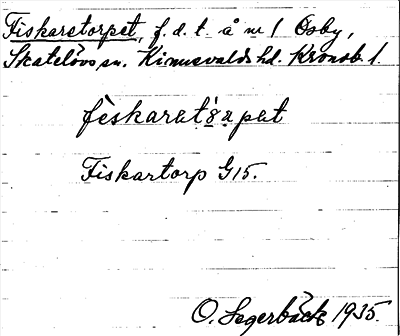 Fiskaretorpet, f.d.t. å nr 1 Osby,
Skatelövs sn. Kinnevalds hd. Kronob. l.
Fiskartorp G15.
O. Segerbäck 1935.